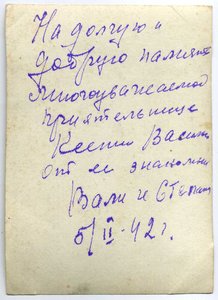 На долгую и
добрую память
многоуважаемой
приятельнице
Ксении Васил
от ее знакомых
Вали и Степан
5/II-42 г.